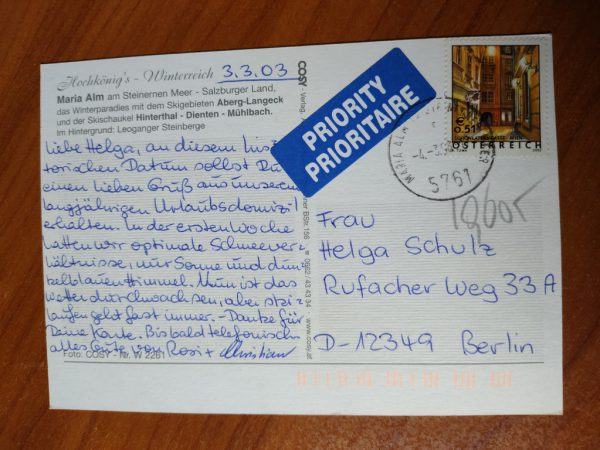 Hochkönig's - Winterreich 3.3.03
Maria Alm am Steinernen Meer - Salzburger Land,
das Winterparadies mit dem Skigebieten Aberg-Langeck
und der Skischaukel Hinterthal - Dienten - Mühlbach.
Im Hintergrund: Leoganger Steinberge
Liebe Helga, an diesem hist
torischen Datum sollst Du
einen lieben Gruß aus unserem
langjährigen Urlaubsdomizil
erhalten. In der ersten Woche
hatten wir optimale Schneever-
hältnisse, nur Sonne und dun
kelblauen Himmel. Nun ist das
Wetter durchwachsen, aber ski
laufen geht fast immer. - Danke für
Deine Karte. Bis bald telefonisch
alles Gute von Rosi + Christian
Foto: COSY - Nr. W 2261
COSY Verlag,
BStr. 156 0662/ 43 43 34 www.cosy.at
PRIORITY
PRIORITAIRE
€ 0.51
WIEN
ÖSTERREICH
MARIA ALM
5761
Frau
Helga Schulz
Rufacher Weg 33 A
D-12349 Berlin